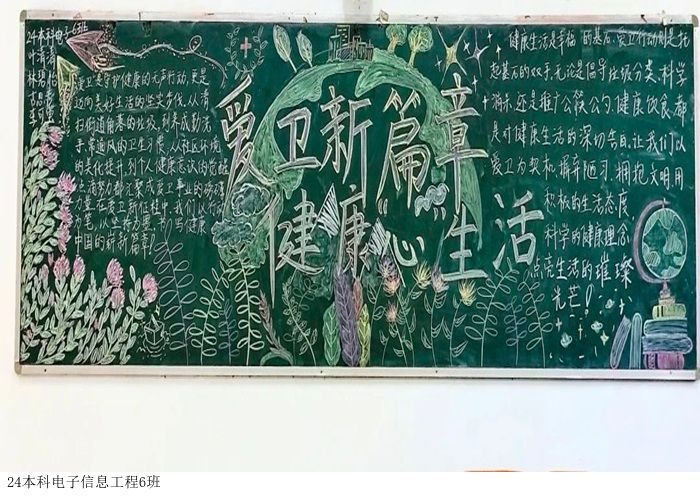 24本科电子6班
爱卫是守护健康的无声行动,更是
迈向美好生活的坚实步伐。从清
扫街道角落的垃圾,到养成勤洗
手、常通风的卫生习惯,从社区环境
的美化提升,到个人健康意识的觉醒
力量。在爱卫新征程中,我们以行动
为笔,以坚持为墨,书写健康
中国的崭新篇章!
爱卫新篇章
健康“心”生活
健康生活是幸福的基石,爱卫行动则是托
起基石的双手,无论是倡导垃圾分类、科学
消杀,还是推广公筷公勺、健康饮食,都
是对健康生活的深切告白,让我们以
爱卫为契机,摒弃陋习,拥抱文明,用
积极的生活态度
科学的健康理念
点亮生活的璀璨
光芒!
24本科电子信息工程6班